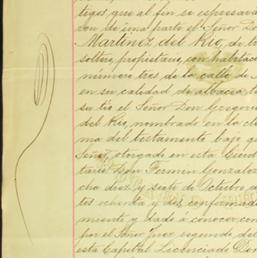 tigos que al fin se espresara
ron de una parte el Señor D
Martinez del Rio, de
soltero propietario, con habitac
número tres de la calle de
en su calidad de albacea
su tio el Señor Don Gregorio
del Rio, nombrado en la cla
ma del testamento bajo que
Señor, otorgado en esta
tario Don Fermin Gonzalez
cha diez y siete de Octubre
tos ochenta y confirmad
miento y dado á conocer com
por el Señor Juez segundo de
esta Capital Licenciado